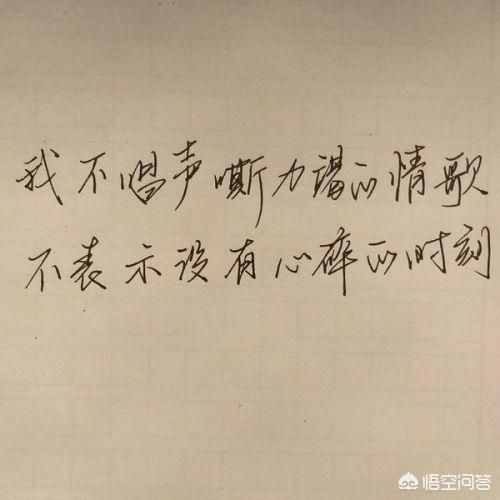 我不唱声嘶力竭的情歌
不表示没有心碎的时刻
悟空问答